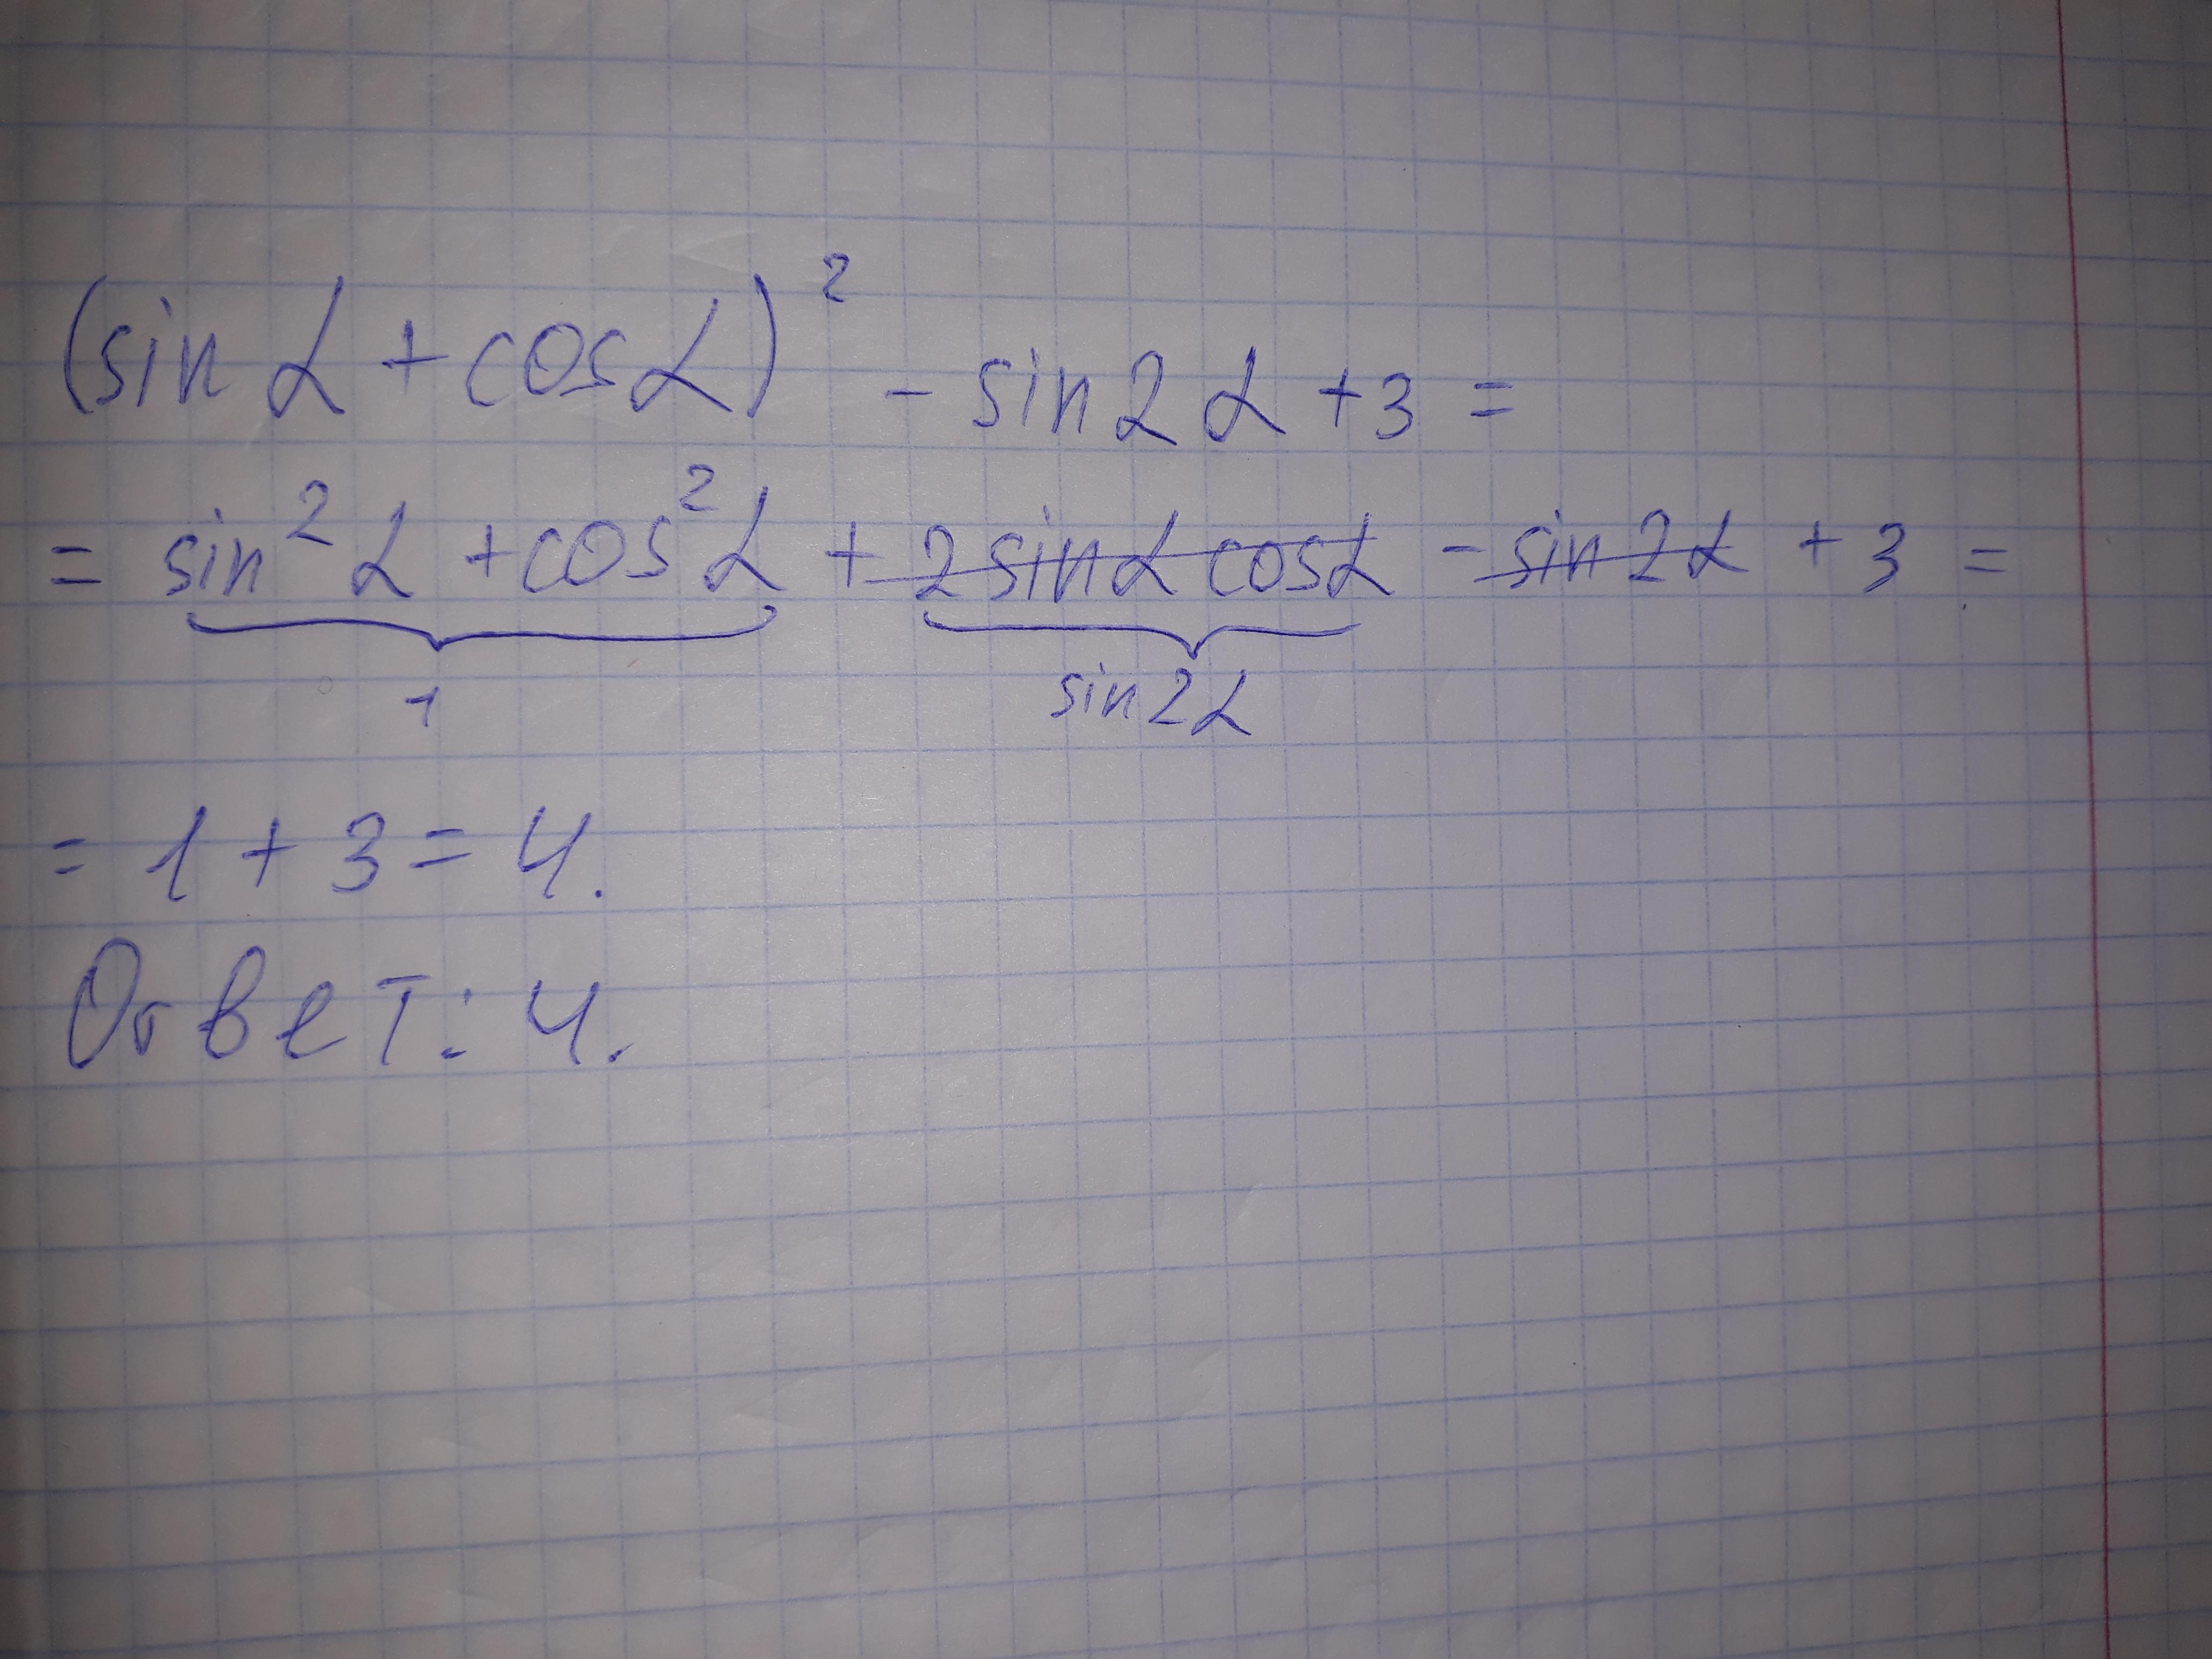 (sin α + cos α)² - sin 2α + 3 =
= sin² α + cos² α + 2 sin α cos α - sin 2α + 3 =
1 sin 2α
= 1 + 3 = 4.
Ответ: 4.